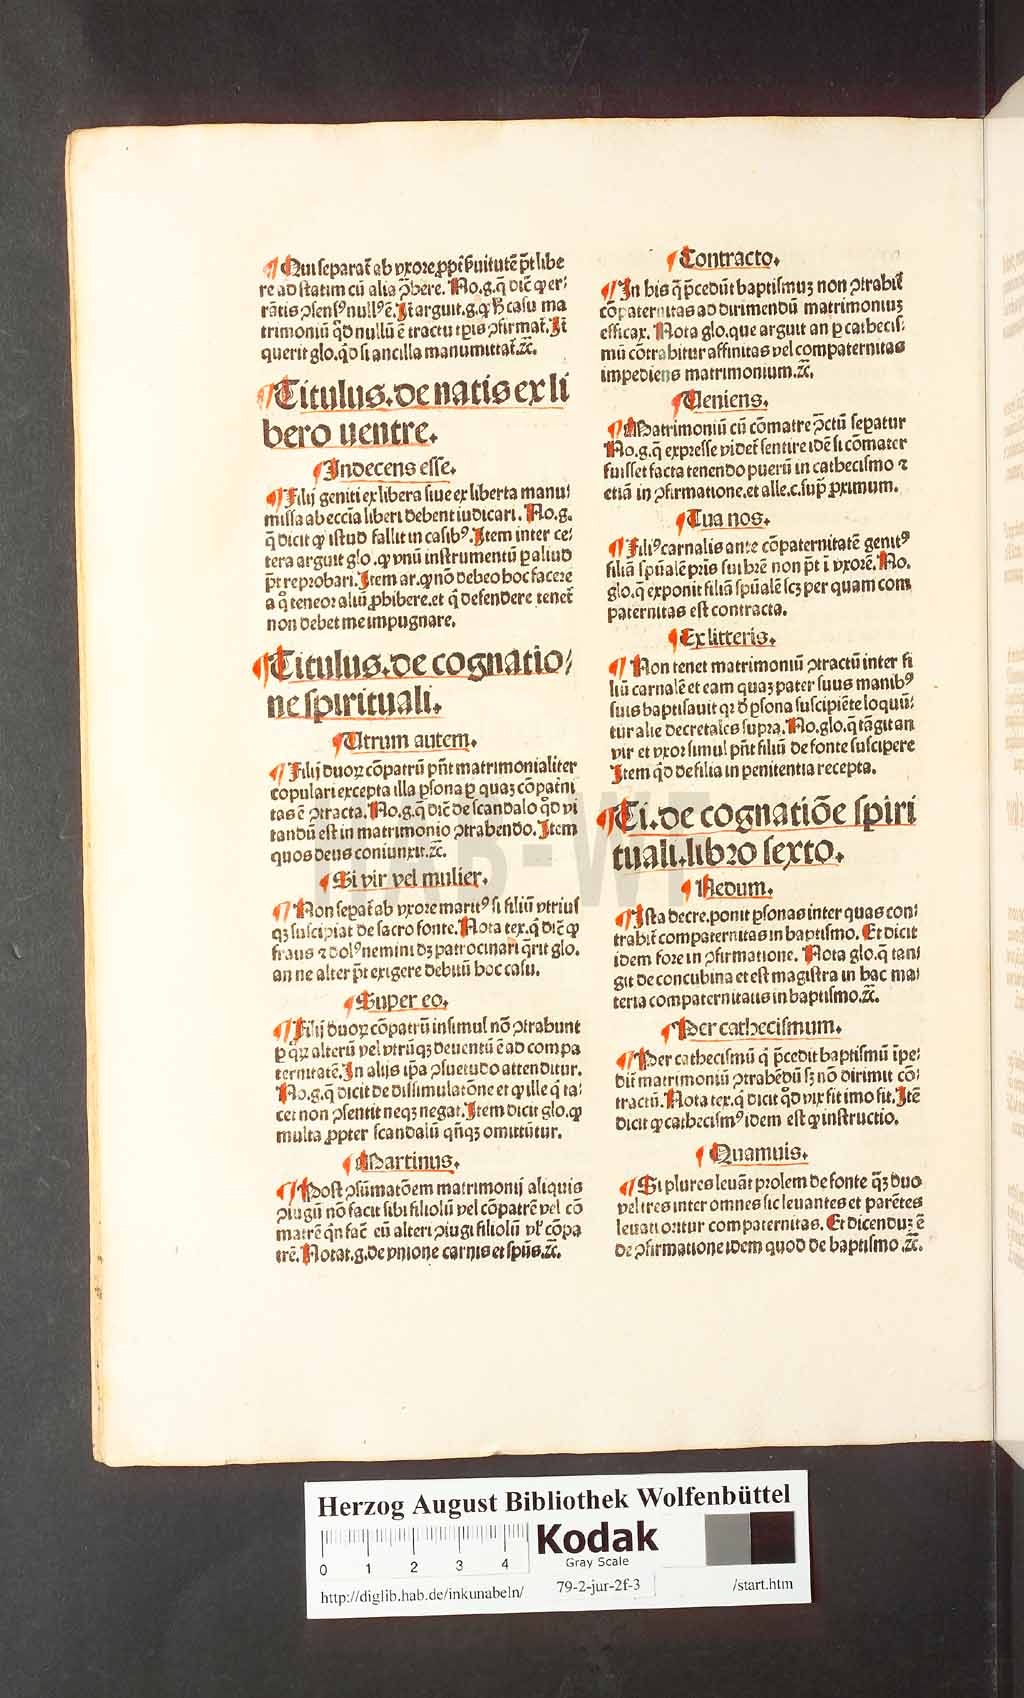 ¶ Qui separat̃ ab vxore ꝓpt̃ ẜuitutẽ p̃t libe
re ad statim cũ alia ꝯ̃bere. No.g.q̃ dic̃ ꝙ er⸗
rãtis ꝯsensꝰ nullꝰ ẽ. Jt̃ arguit.g.ꝙ casu ma
trimoniũ qd̃ nullũ ẽ tractu tp̃is ꝯfirmat̃. Jt̃
querit glo. qd̃ si ancilla manumittat̃.⁊c̃.
¶ Titulus.de natis ex li
bero uentre.
¶ Jndecens esse.
¶ Filij geniti ex libera siue ex liberta manu⸗
missa ab ecc̃ia liberi debent iudicari. No.g.
q̃ dicit ꝙ istud fallit in casibꝰ. Jtem inter ce⸗
tera arguit glo. ꝙ vnũ instrumentũ ꝑ aliud
p̃t reprobari. Jtem ar. ꝙ nõ debeo hoc facere
a q̊ teneor aliũ ꝓhibere. et q̃ defendere tenet̃
non debet me impugnare.
¶ Titulus.de cognatio⸗
ne spirituali.
¶ Utrum autem.
¶ Filij duoꝝ cõpatrũ pñt matrimonialiter
copulari excepta illa ꝑsona ꝑ quaꝫ cõpatni
tas ẽ ꝯtracta. No.g.q̃ dic̃ de scandalo qd̃ vi
tandũ est in matrimonio ꝯtrahendo. Jtem
quos deus coniunxit.⁊c̃.
¶ Si vir vel mulier.
¶ Non sepat̃ ab vxore maritꝰ si filiũ vtrius
qꝫ suscipiat de sacro fonte. Nota tex. q̃ dic̃ ꝙ
fraus ⁊ dolꝰ nemini dꝫ patrocinari q̃rit glo.
an ne alter p̃t exigere debitũ hoc casu.
¶ Super eo.
¶ Filij duoꝝ cõpatrũ insimul nõ ꝯtrahunt
ꝑ alterũ vel vtrũqꝫ deuentũ ẽ ad compa
ternitatẽ. Jn alijs ip̃a ꝯsuetudo attenditur.
No.g.q̃ dicit de dissimulatõne et ꝙ ille q̃ ta⸗
cet non ꝯsentit neqꝫ negat. Jtem dicit glo. ꝙ
multa ꝓpter scandalũ qñqꝫ omittũtur.
¶ Martinus.
¶ Post ꝯsũmatõem matrimonij aliquis
ꝯiugũ nõ facit sibi filiolũ vel cõpatrẽ vel cõ
matrẽ qn̄ fac̃ eũ alteri ꝯiugi filiolũ vl̃ cõpa
trẽ. Notat.g.de vnione carnis et sp̃us.⁊c̃.
¶ Contracto.
¶ Jn his q̃ p̃cedũt baptismuꝫ non ꝯtrahit̃
cõpaternitas ad dirimendũ matrimoniuꝫ
efficax. Nota glo. que arguit an ꝑ cathecis⸗
mũ cõtrahitur affinitas vel compaternitas
impediens matrimonium.⁊c̃.
¶ Ueniens.
¶ Matrimoniũ cũ cõmatre ꝯ̃ctũ sepatur
No.g.q̃ expresse videt̃ sentire idẽ si cõmater
fuisset facta tenendo puerũ in cathecismo ⁊
etiã in ꝯfirmatione. et alle.c.sup̃ ꝓximum.
¶ Tua nos.
¶ Filiꝰ carnalis ante cõpaternitatẽ genitꝰ
filiã spũalẽ pris sui bñ non p̃t i vxorẽ. No.
glo. q̃ exponit filiã spũalẽ scꝫ per quam com
paternitas est contracta.
¶ Ex litteris.
¶ Non tenet matrimoniũ ꝯtractũ inter fi
liũ carnalẽ et eam quaꝫ pater suus manibꝰ
suis baptisauit qꝛ d̃ ꝑsona suscipiẽte loquũ⸗
tur alie decretales supra. No. glo. q̃ tãgit an
vir et vxor simul pñt filiũ de fonte suscipere
Jtem qd̃ de filia in penitentia recepta.
¶ Ti.de cognatiõe spiri
tuali.libro sexto.
¶ Nedum.
¶ Jsta decre. ponit ꝑsonas inter quas con⸗
trahit̃ compaternitas in baptismo. Et dicit
idem fore in ꝯfirmatione. Nota glo. q̃ tan⸗
git de concubina et est magistra in hac ma⸗
teria compaternitatis in baptismo.⁊c̃.
¶ Per cathecismum.
¶ Per cathecismũ q̃ p̃cedit baptismũ ĩpe⸗
dit̃ matrimoniũ ꝯtrahẽdũ sꝫ nõ dirimit cõ⸗
tractũ. Nota tex. q̃ dicit qd̃ vix fit imo fit. Jtẽ
dicit ꝙ cathecismꝰ idem est ꝙ instructio.
¶ Quamuis.
¶ Si plures leuãt prolem de fonte q̃ꝫ duo
vel tres inter omnes sic leuantes et parẽtes
leuati oritur compaternitas. Et dicenduꝫ ẽ
de ꝯfirmatione idem quod de baptismo.⁊c̃.
HAB-WF
Herzog August Bibliothek Wolfenbüttel
0 1 2 3 4
Kodak
Gray Scale
http://diglib.hab.de/inkunabeln/ 79-2-jur-2f-3 /start.htm